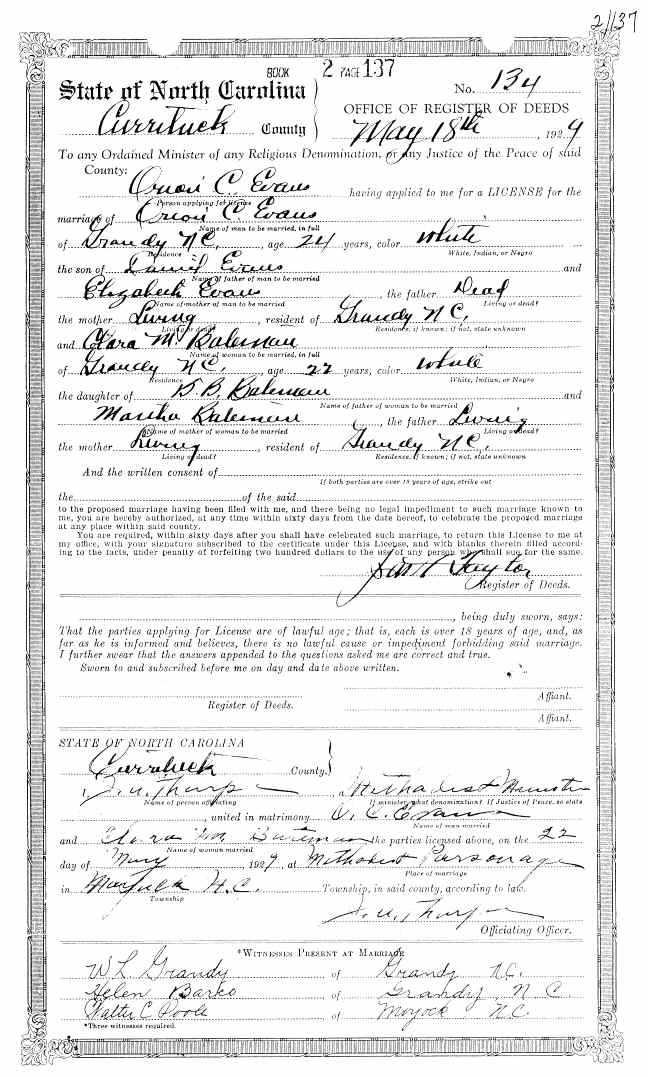 2/137
BOOK 2 PAGE 137
State of North Carolina
No. 134
Currituck County
OFFICE OF REGISTER OF DEEDS
May 18th, 1929
To any Ordained Minister of any Religious Denomination, or any Justice of the Peace of said
County:
Orion C. Evans having applied to me for a LICENSE for the
Person applying for license
marriage of Orion C Evans
Name of man to be married, in full
of Grandy NC., age 24 years, color White
Residence White, Indian, or Negro
the son of Evans and
Name of father of man to be married
Elizabeth Evans, the father Dead
Name of mother of man to be married Living or dead?
the mother Living, resident of Grandy NC.
Living or dead? Residence, if known; if not, state unknown
and Clara M Bateman
Name of woman to be married, in full
of Grandy NC., age 22 years, color White
Residence White, Indian, or Negro
the daughter of B. Bateman and
Name of father of woman to be married
Martha Bateman, the father Living
Name of mother of woman to be married Living or dead?
the mother Living, resident of Grandy NC.
Living or dead? Residence, if known; if not, state unknown
And the written consent of
If both parties are over 18 years of age, strike out
the of the said
to the proposed marriage having been filed with me, and there being no legal impediment to such marriage known to
me, you are hereby authorized, at any time within sixty days from the date hereof, to celebrate the proposed marriage
at any place within said county.
You are required, within sixty days after you shall have celebrated such marriage, to return this License to me at
my office, with your signature subscribed to the certificate under this License, and with blanks therein filled accord-
ing to the facts, under penalty of forfeiting two hundred dollars to the use of any person who shall sue for the same.
Taylor
Register of Deeds.
, being duly sworn, says:
That the parties applying for License are of lawful age; that is, each is over 18 years of age, and, as
far as he is informed and believes, there is no lawful cause or impediment forbidding said marriage.
I further swear that the answers appended to the questions asked me are correct and true.
Sworn to and subscribed before me on day and date above written.
Affiant.
Register of Deeds.
Affiant.
STATE OF NORTH CAROLINA
Currituck County.
J. U. Tharp a Methodist Minister
Name of person officiating If minister, what denomination? If Justice of Peace, so state
, united in matrimony O. C. Evans
Name of man married
and Clara M Bateman the parties licensed above, on the 22
Name of woman married
day of May 1929, at Methodist Parsonage
Place of marriage
in N.C. Township, in said county, according to law.
Township
Tharp
Officiating Officer.
*WITNESSES PRESENT AT MARRIAGE
W L Grandy of Grandy N.C.
Helen Barco of Grandy N C
Walter C Poole of Moyock N.C.
*Three witnesses required.